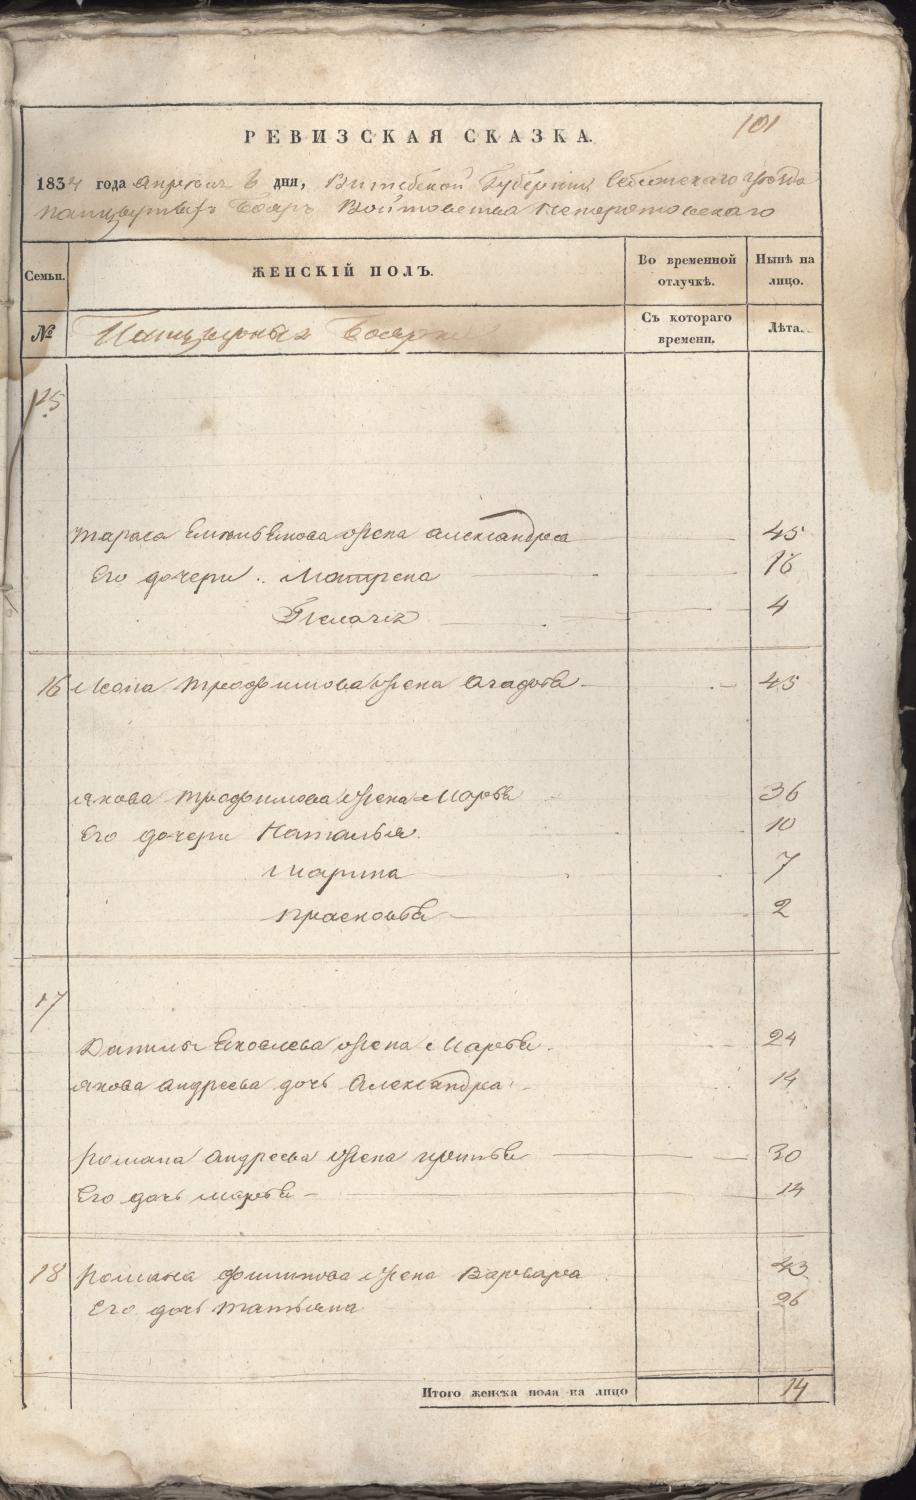 101
РЕВИЗСКАЯ СКАЗКА.
1834 года Апреля 6 дня, Витебской Губернии Себежскаго уезда
панцырныхъ Бояръ Войтовства Нетеротовскаго
Семьи. ЖЕНСКІЙ ПОЛЪ. Во временной отлучкѣ. Нынѣ на лицо.
№ Панцырныхъ Бояръ Съ котораго времени. Лѣта.
15
Тараса Емельянова жена Александра 45
Его дочери Матрена 18
Пелагея 4
16 Иона Трофимова жена Агафья 45
Якова Трофимова жена Марья 36
Его дочери Наталья 10
Марина 7
Прасковья 2
17
Данилы Яковлева жена Марья 24
Якова Андреева дочь Александра 14
Романа Андреева жена 30
Его дочь Марья 14
18 Романа Филипова жена Варвара 43
Его дочь Татьяна 26
Итого женска пола на лицо 14